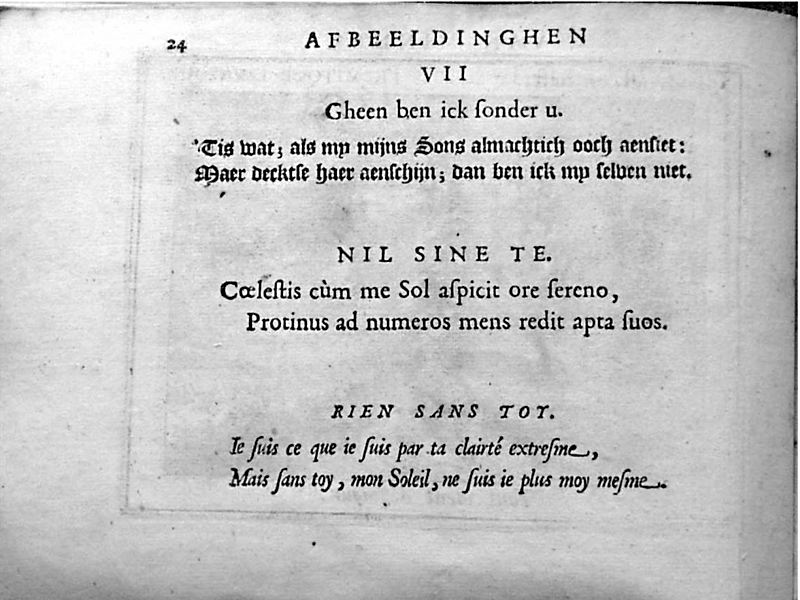 24 AFBEELDINGHEN
VII
Gheen ben ick ſonder u.
'Tis wat; als my mijns Sons almachtich ooch aenſiet:
Maer decktſe haer aenſchijn; dan ben ick my ſelven niet.
NIL SINE TE.
Cœleſtis cùm me Sol aſpicit ore ſereno,
Protinus ad numeros mens redit apta ſuos.
RIEN SANS TOY.
Ie ſuis ce que ie ſuis par ta clairté extreſme,
Mais ſans toy, mon Soleil, ne ſuis ie plus moy meſme.